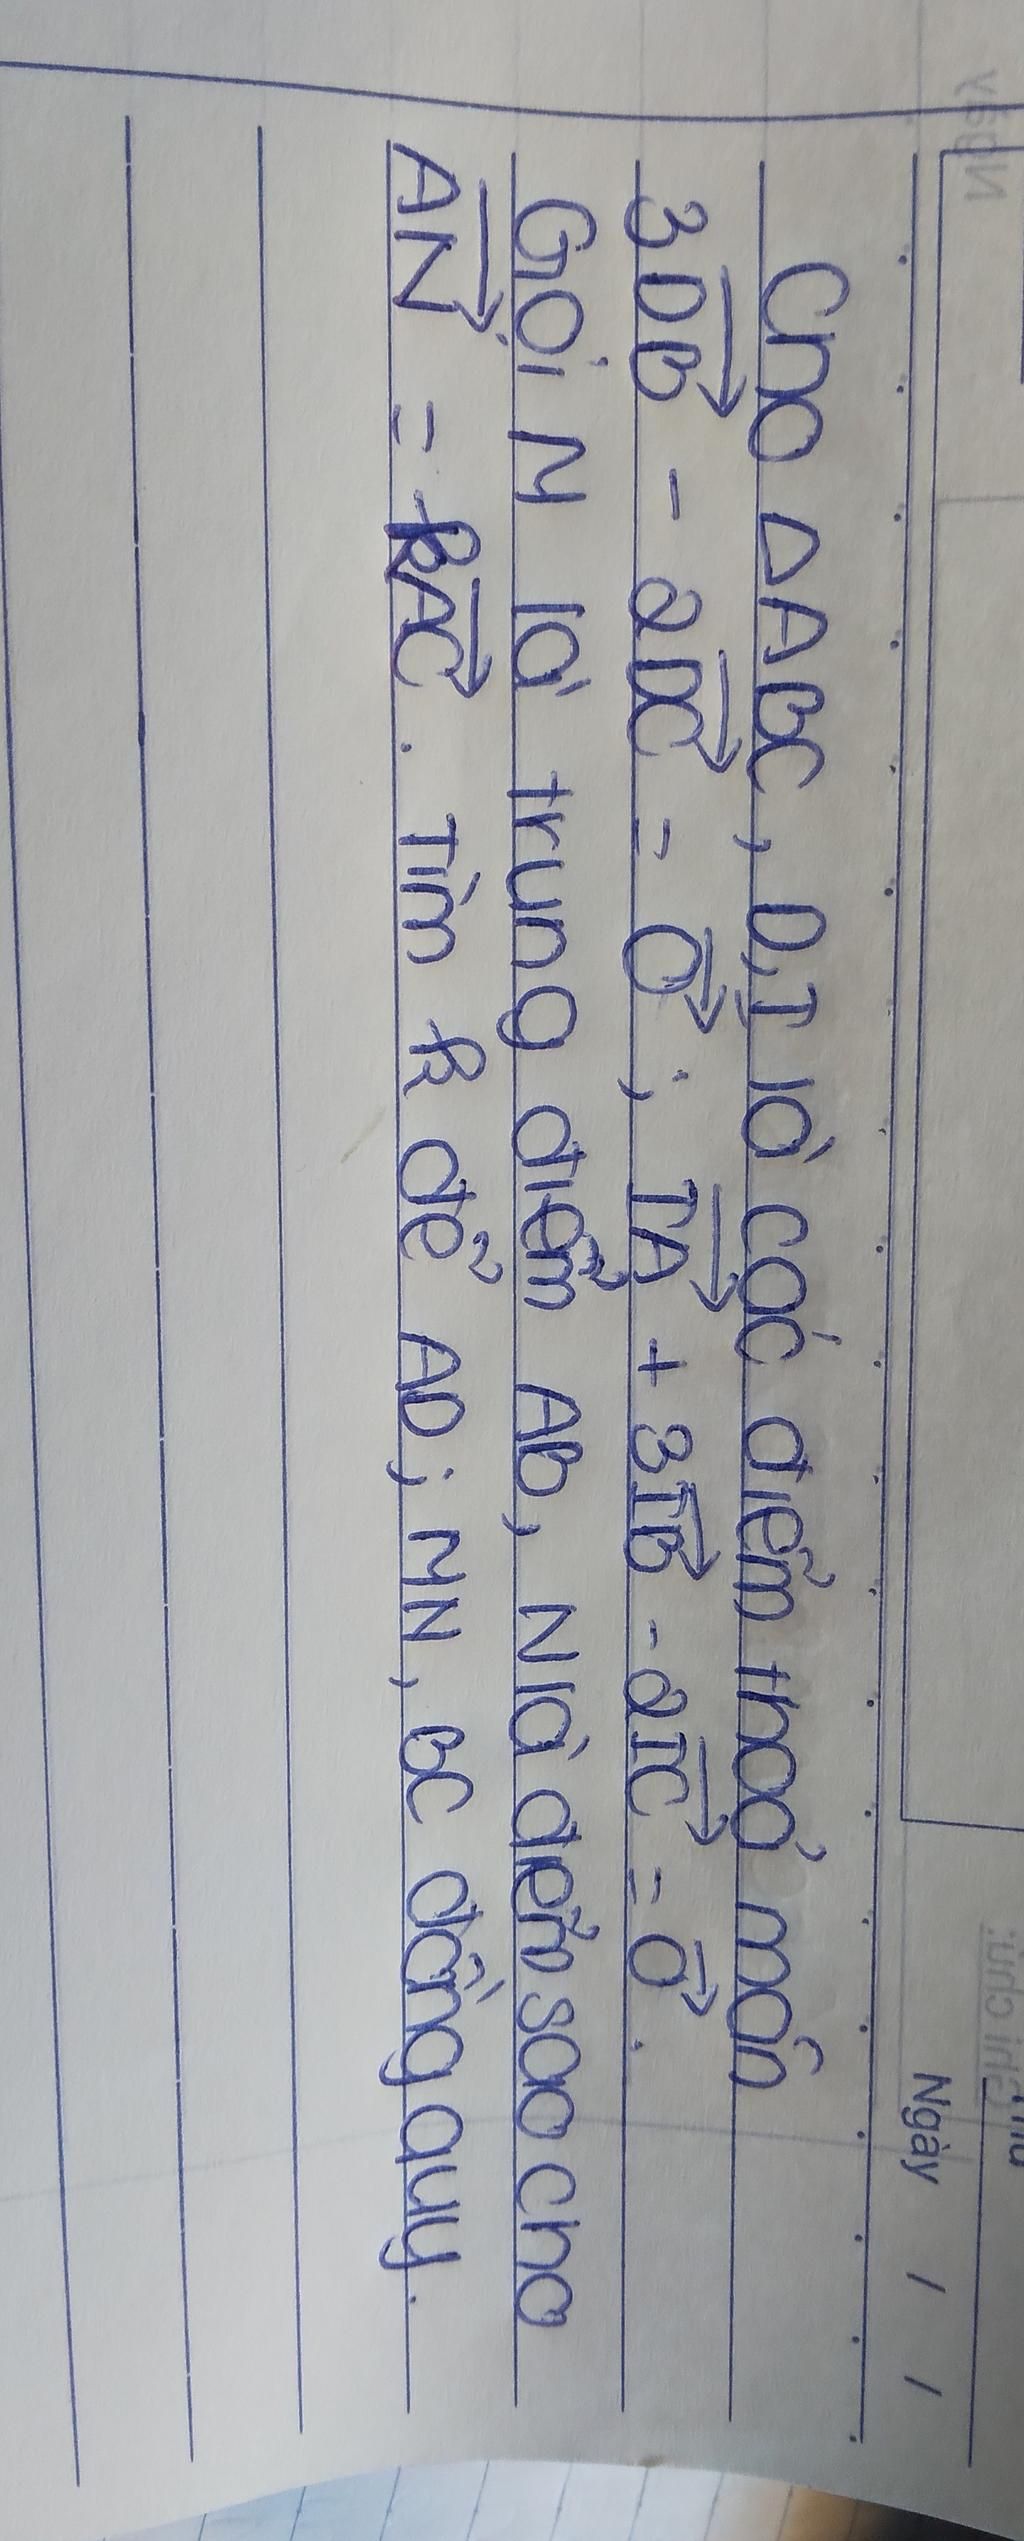 Ngày / /
Cho ΔABC, D, I là các điểm thoả mãn
3DB⃗ - 2DC⃗ = 0⃗ ; IA⃗ + 3IB⃗ - 2IC⃗ = 0⃗.
Gọi M là trung điểm AB, N là điểm sao cho
AN⃗ = kAC⃗. Tìm k để AD; MN, BC đồng quy.